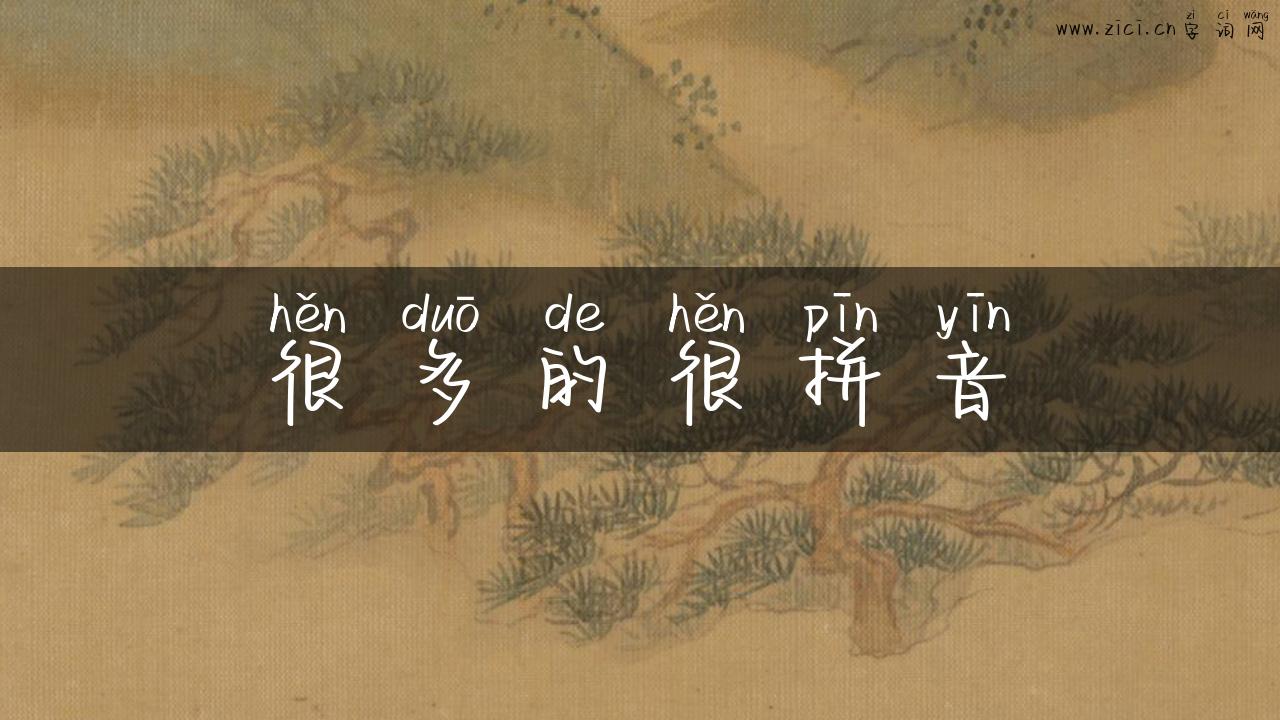 www.zīcī.cn zì cí wǎng
字词网
hěn duō de hěn pīn yīn
很多的很拼音